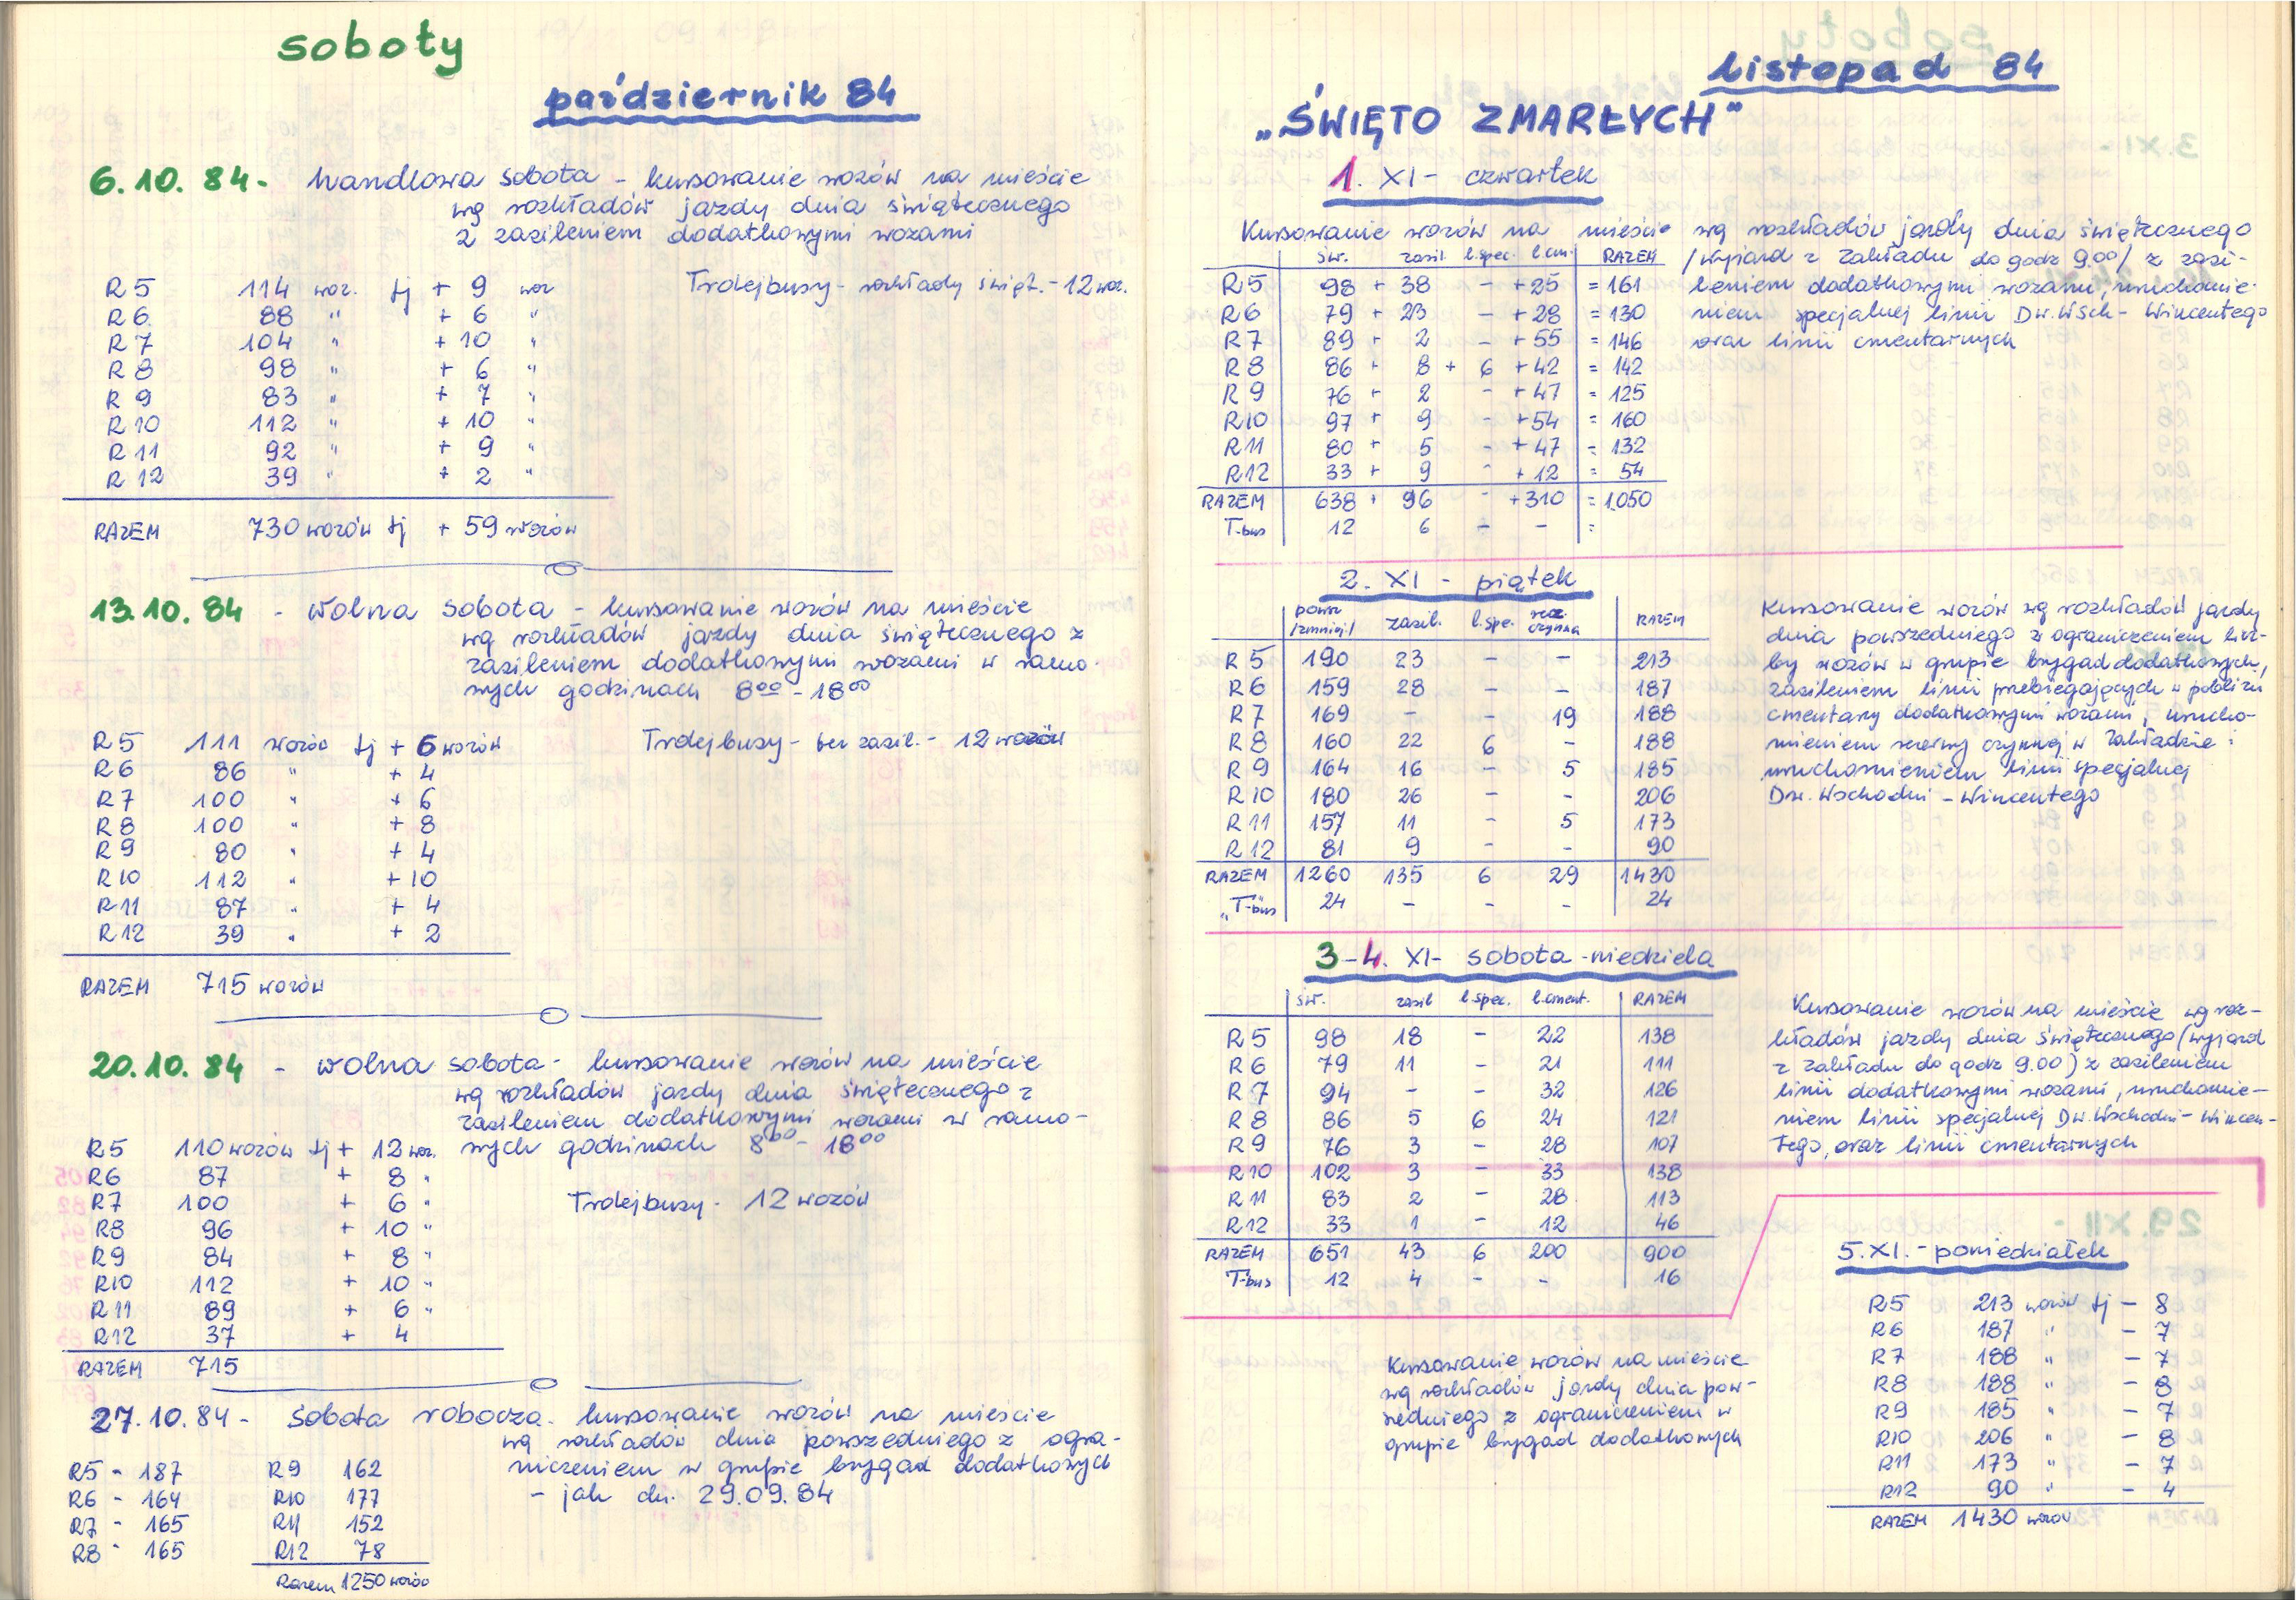 soboty
październik 84
6.10.84 - handlowa sobota - kursowanie wozów na mieście
wg rozkładów jazdy dnia świątecznego
z zasileniem dodatkowymi wozami
R5 114 woz. tj + 9 woz
Trolejbusy - rozkłady święt. - 12 woz.
R6 88 " + 6 "
R7 104 " + 10 "
R8 98 " + 6 "
R9 83 " + 7 "
R10 112 " + 10 "
R11 92 " + 9 "
R12 39 " + 2 "
RAZEM 730 wozów tj + 59 wozów
13.10.84 - wolna sobota - kursowanie wozów na mieście
wg rozkładów jazdy dnia świątecznego z
zasileniem dodatkowymi wozami w ramo-
wych godzinach 8⁰⁰ - 18⁰⁰
R5 111 wozów tj + 6 wozów
Trolejbusy - bez zasil. - 12 wozów
R6 86 " + 4
R7 100 " + 6
R8 100 " + 8
R9 80 " + 4
R10 112 " + 10
R11 87 " + 4
R12 39 " + 2
RAZEM 715 wozów
20.10.84 - wolna sobota - kursowanie wozów na mieście
wg rozkładów jazdy dnia świątecznego z
zasileniem dodatkowymi wozami w ramo-
wych godzinach 8⁰⁰ - 18⁰⁰
R5 110 wozów tj + 12 woz.
R6 87 + 8 "
R7 100 + 6 "
Trolejbusy - 12 wozów
R8 96 + 10 "
R9 84 + 8 "
R10 112 + 10 "
R11 89 + 6 "
R12 37 + 4
RAZEM 715
27.10.84 - sobota robocza - kursowanie wozów na mieście
wg rozkładów dnia powszedniego z ogra-
niczeniem w grupie brygad dodatkowych
- jak dn. 29.09.84
R5 - 187 R9 162
R6 - 164 R10 177
R7 - 165 R11 152
R8 - 165 R12 78
Razem 1250 wozów
listopad 84
„ŚWIĘTO ZMARŁYCH"
1. XI - czwartek
Kursowanie wozów na mieście wg rozkładów jazdy dnia świątecznego
/wyjazd z Zakładu do godz 9.00/ z zasi-
leniem dodatkowymi wozami, uruchomie-
niem specjalnej linii Dw.Wsch - Wincentego
oraz linii cmentarnych
św. zasil. l.spec. l.cm. RAZEM
R5 98 + 38 - + 25 = 161
R6 79 + 23 - + 28 = 130
R7 89 + 2 - + 55 = 146
R8 86 + 8 + 6 + 42 = 142
R9 76 + 2 - + 47 = 125
R10 97 + 9 - + 54 = 160
R11 80 + 5 - + 47 = 132
R12 33 + 9 - + 12 = 54
RAZEM 638 + 96 - + 310 = 1.050
T-bus 12 6 - - =
2. XI - piątek
powsz /zmniej./ zasil. l.spe. rez. czynna RAZEM
R5 190 23 - - 213
R6 159 28 - - 187
R7 169 - - 19 188
R8 160 22 6 - 188
R9 164 16 - 5 185
R10 180 26 - - 206
R11 157 11 - 5 173
R12 81 9 - - 90
RAZEM 1260 135 6 29 1430
„T"-bus 24 - - - 24
Kursowanie wozów wg rozkładów jazdy
dnia powszedniego z ograniczeniem licz-
by wozów w grupie brygad dodatkowych,
zasileniem linii przebiegających w pobliżu
cmentarzy dodatkowymi wozami, urucho-
mieniem rezerwy czynnej w Zakładzie i
uruchomieniem linii specjalnej
Dw. Wschodni - Wincentego
3-4. XI - sobota - niedziela
św. zasil l.spec. l.cment. RAZEM
R5 98 18 - 22 138
R6 79 11 - 21 111
R7 94 - - 32 126
R8 86 5 6 24 121
R9 76 3 - 28 107
R10 102 3 - 33 138
R11 83 2 - 28 113
R12 33 1 - 12 46
RAZEM 651 43 6 200 900
T-bus 12 4 - - 16
Kursowanie wozów na mieście wg roz-
kładów jazdy dnia świątecznego (wyjazd
z Zakładu do godz 9.00) z zasileniem
linii dodatkowymi wozami, uruchomie-
niem linii specjalnej Dw.Wschodni - Wincen-
tego, oraz linii cmentarnych
5.XI. - poniedziałek
R5 213 wozów tj - 8
R6 187 " - 7
R7 188 " - 7
R8 188 " - 8
R9 185 " - 7
R10 206 " - 8
R11 173 " - 7
R12 90 " - 4
RAZEM 1430 wozów
Kursowanie wozów na mieście
wg rozkładów jazdy dnia pow-
szedniego z ograniczeniem w
grupie brygad dodatkowych